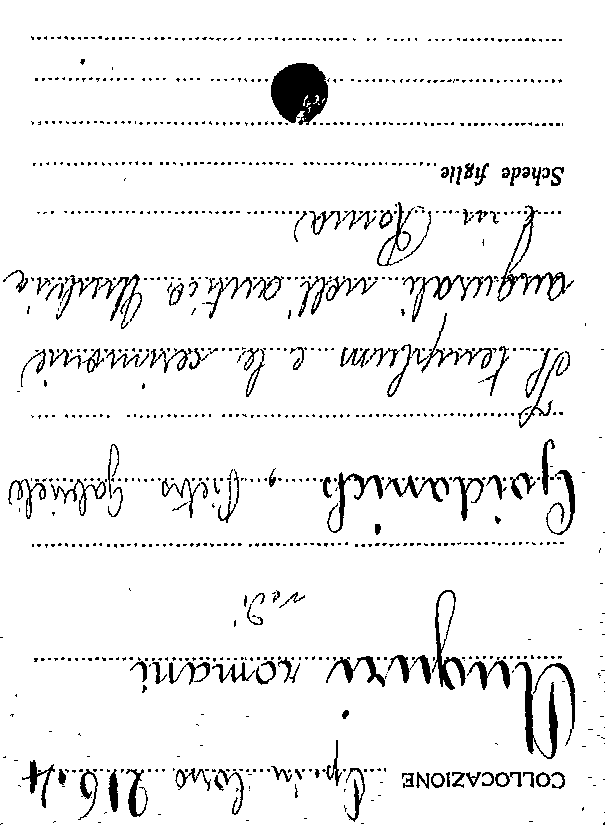 COLLOCAZIONE Opin Corso 216.4
Auguri romani
vedi
Goidanich, Pietro Gabriele
Il templum e le cerimonie
augurali nell'antica Umbria
e in Roma
Schede figlie